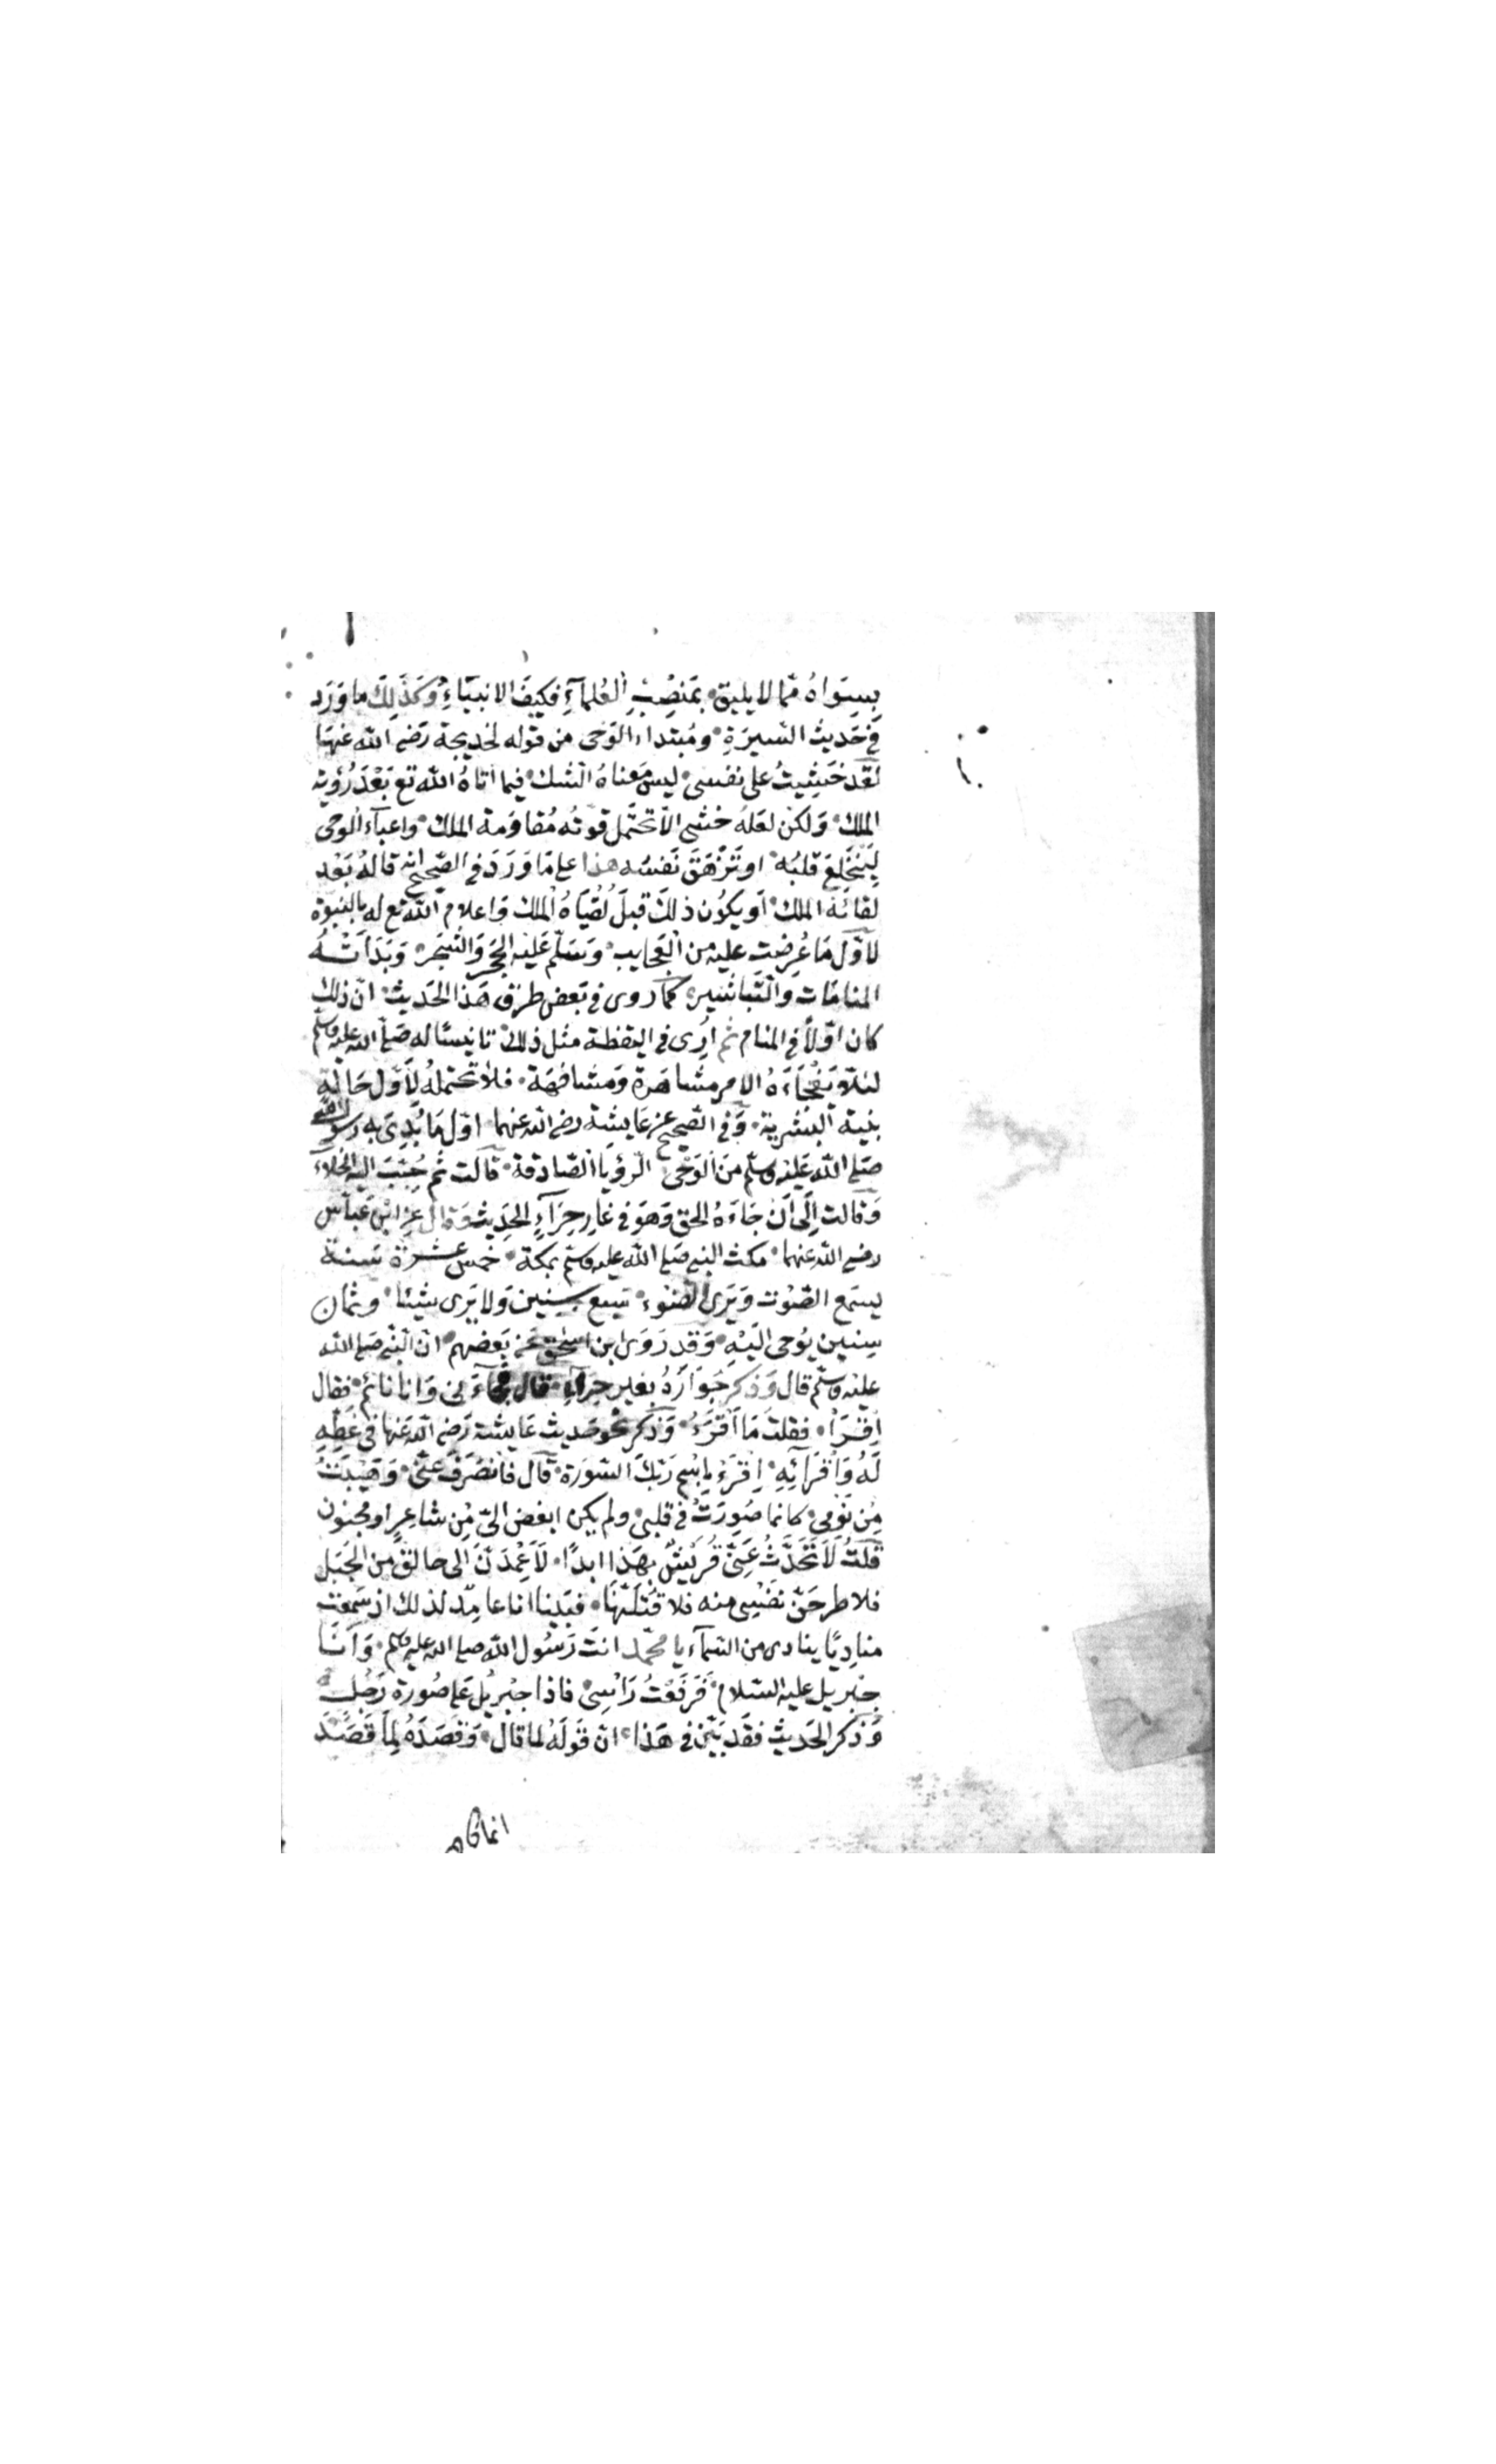 بِسِوَاهُ ممّا لا يليق بمَنصِبِ العُلمآءِ فكيفَ الانبيَاءِ وَكذَلِكَ ما وَرَدَ
في حَديث السّيرَةِ ومُبتداء الوَحى من قوله لخديجة رَضى الله عَنهَا
لقَد خَشِيتُ على نفسى ليسَ مَعناهُ الشك فيما اتاهُ الله تع بَعْدَ رُؤية
الملك وَلكن لعَلهُ خشى الا تحتَمل قوّتُه مُقاوَمة الملك واعبآء الوحى
لِيَنخلِعَ قلبُه او تَزْهَقَ نَفسُه هذا على مَا وَرَدَ في الصّحيح انه قالهُ بَعْد
لقائه الملك اَو يكوُن ذلكَ قبلَ لُقيَاهُ الملك وَاعلام الله تع له بالنبوّة
لاوّل مَا عُرضت عليه من العَجايب وَسَلّمَ عَليْه الحجَر وَالشجَر وَبَدَاَتْهُ
المنامَات وَالتَّبَاشير كمَا روى في بَعض طرُق هَذا الحَديث انّ ذلك
كان اوّلاً في المنام ثم اُرِى في اليقظة مثل ذلك تانيسًا له صَلّى الله عليه وسلّم
لئلّا يَفْجَاَهُ الامر مشاهَرة وَمشافهَة فلا تحتملهُ لاَوّل حَالَةٍ
بنية البَشرية وَفي الصّحيح عن عَايشة رضى الله عنهما اوّل مَا بُدِىَ به رسول الله
صَلى الله عَليْه وسلّم منَ الوَحْى الرّؤيَا الصّادقة قالت ثم حُبّبَ اليه الخلاءَ
وَقالت اِلى اَن جَاءَهُ الحق وَهوَ في غارِ حِرَآءٍ الحَدِيث وَقال عن ابن عَباس
رضى الله عنهما مكث النبى صَلى الله عليه وسلّم بمكة خمس عشرَة سَنة
يسمَع الصّوْت وَيَرَى الضّوء سَبع سِنِين وَلا يَرَى شيْئا وثمان
سِنين يُوحى الَيْهِ وَقد رَوَى ابن اسْحٰق عَن بَعضهم انّ النّبى صَلى الله
عليْه وسلّم قال وَذكرَ جوَارَهُ بغير حِرَآءٍ قال فجآءَنى وَانا نائم فقال
اِقْرَاْ فقلتُ مَا اَقرَءُ وَذكر نحو حَديث عَايشة رَضى الله عَنها في غَطّهِ
لَهُ وَاِقْرَآئِهِ اِقرَءْ بِاسْمِ رَبّكَ السّورَة قال فانْصَرَفَ عَنّى وَهَبَبْتُ
مِن نَوْمى كانما صُوِرَتْ في قلبى ولم يكن ابغض الىّ مِن شاعِرٍ او مجنون
قلتُ لَا تَحَدَّثُ عَنّى قُرَيْشٌ بهَذا ابدًا لَاَعْمِدَنّ الى حالق من الجَبَل
فلاطرحَنّ نفسى منه فلاقتلَنّهَا فبَينا انا عامِدٌ لذلك اذ سَمعت
منادِيًا ينادى من السّمآء يا محمّد انتَ رَسُول الله صلى الله عليه وسلم وَاَنَا
جِبريل عليه السّلام فرَفَعْتُ رَاْسِى فاذا جِبْرِيل على صُورَة رَجُل
وَذكر الحَديث فقَد بَيّن في هَذا انّ قَولَهُ لما قال وَقصَدَهُ لِمَا قَصَدَ
انما كا